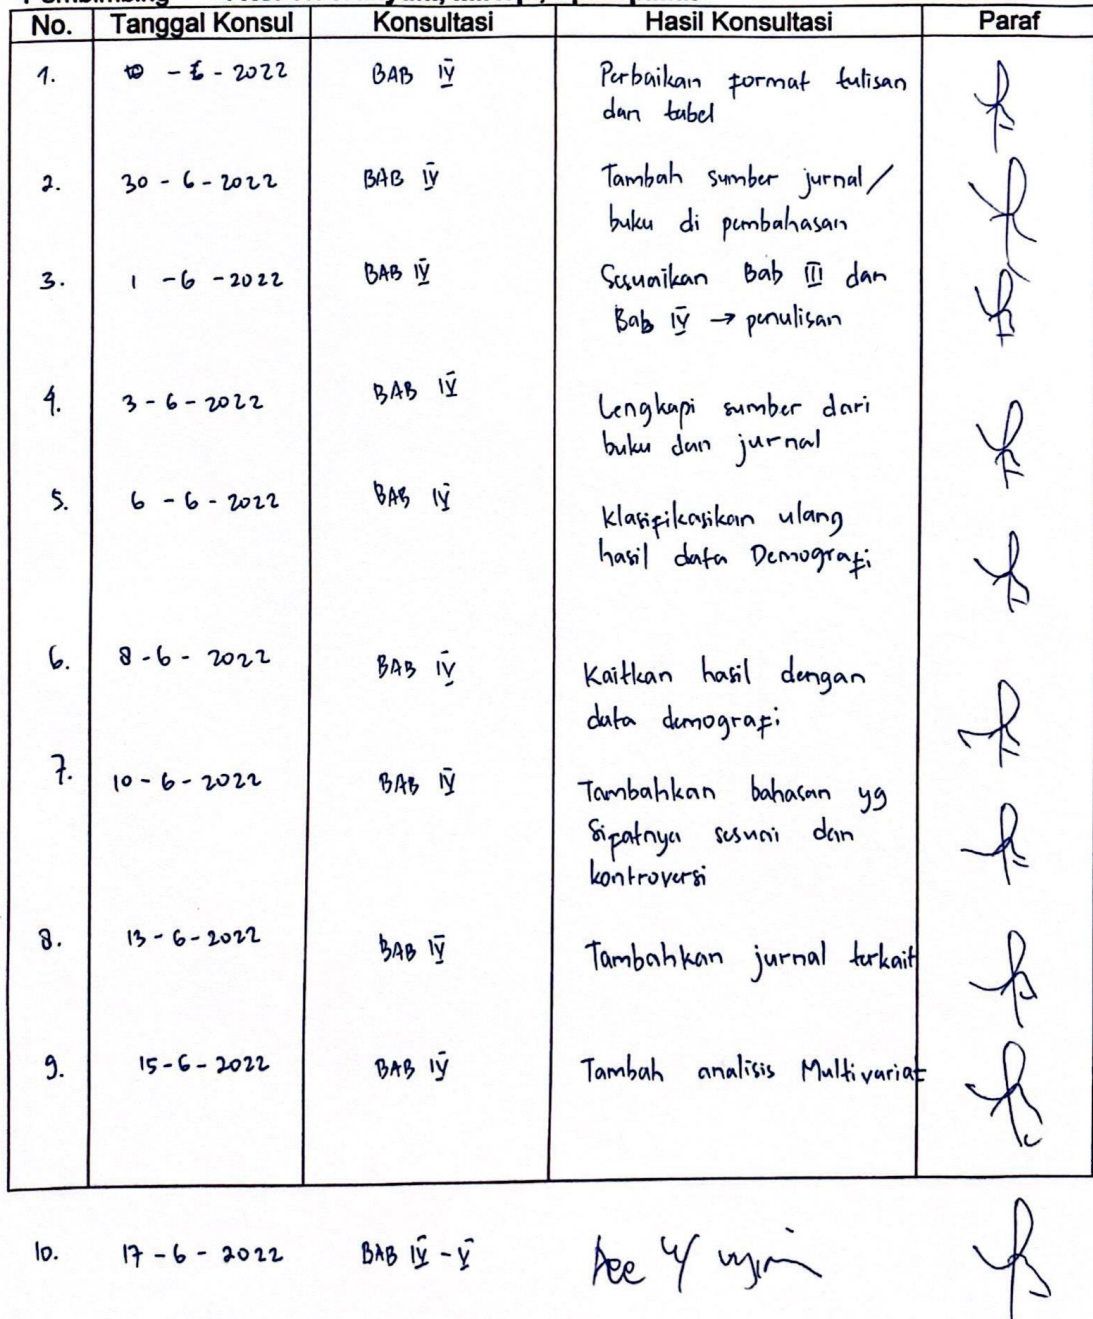 No. Tanggal Konsul Konsultasi Hasil Konsultasi Paraf
1. - 2022 BAB IV Perbaikan format tulisan
dan tabel
2. 30 - 6 - 2022 BAB IV Tambah sumber jurnal/
buku di pembahasan
3. 1 - 6 - 2022 BAB IV Sesuaikan Bab III dan
Bab IV → penulisan
4. 3 - 6 - 2022 BAB IV Lengkapi sumber dari
buku dan jurnal
5. 6 - 6 - 2022 BAB IV Klasifikasikan ulang
hasil data Demografi
6. 8 - 6 - 2022 BAB IV Kaitkan hasil dengan
data demografi
7. 10 - 6 - 2022 BAB IV Tambahkan bahasan yg
Sifatnya sesuai dan
kontroversi
8. 13 - 6 - 2022 BAB IV Tambahkan jurnal terkait
9. 15 - 6 - 2022 BAB IV Tambah analisis Multivariat
10. 17 - 6 - 2022 BAB IV - V Acc u/ ujian